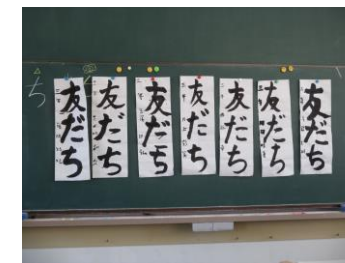 ち
友だち
友だち
友だち
友だち
友だち
友だち
友だち